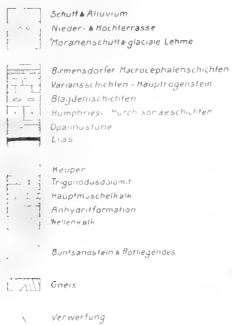 Schutt & Alluvium
Nieder- & Hochterrasse
Moränenschutt & glaciale Lehme
Birmensdorfer Macrocephalenschichten
Variansschichten - Hauptrogenstein
Blagdenischichten
Humphriesi
Opalinustone
Lias
Keuper
Trigonodusdolomit
Hauptmuschelkalk
Anhydritformation
Wellenkalk
Buntsandstein & Rotliegendes
Gneis
Verwerfung